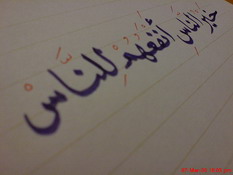 خَيرُ النَّاسِ أَنفَعُهُمْ لِلنَّاسْ